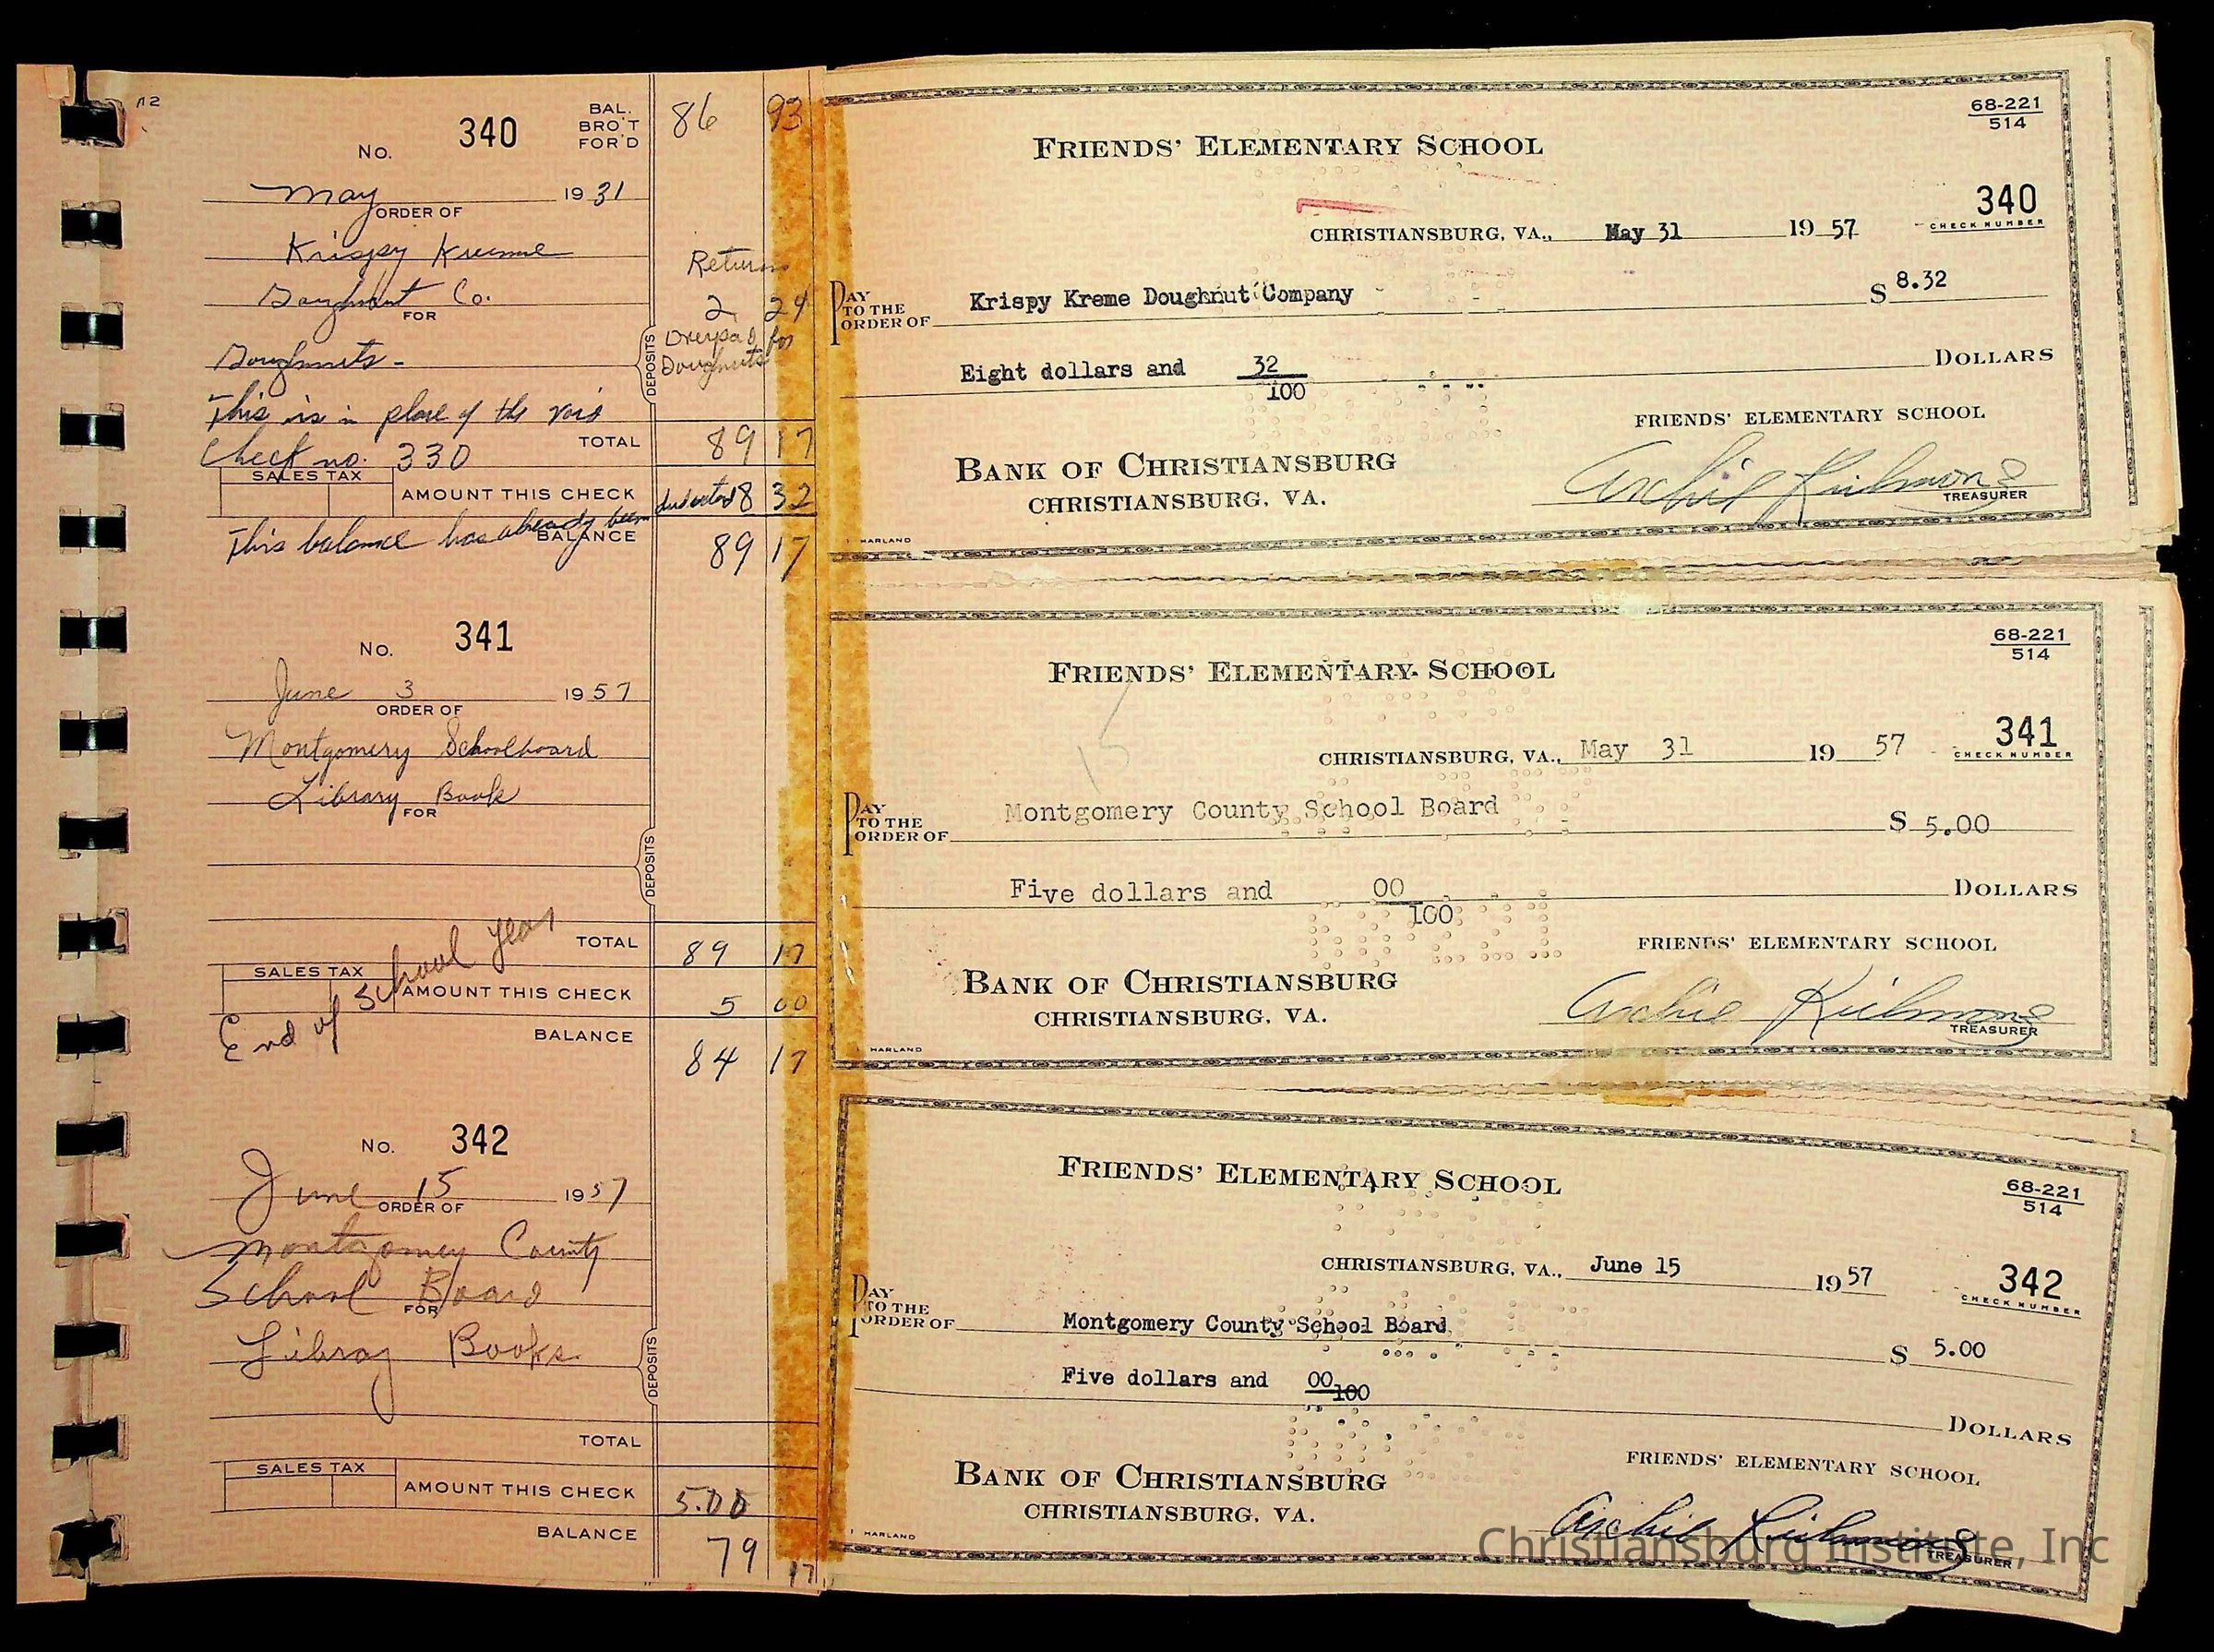 No. 340 BAL. BRO'T FOR'D 86 93
May 1931
ORDER OF
Krispy Kreme
Doughnut Co.
FOR
Returns
2 24
Doughnuts -
Overpaid for
Doughnuts
DEPOSITS
This is in place of the void
Check no. 330
TOTAL 89 17
SALES TAX
AMOUNT THIS CHECK deducted 8 32
This balance has already been
BALANCE 89 17
No. 341
June 3 1957
ORDER OF
Montgomery Schoolboard
Library Book
FOR
DEPOSITS
TOTAL 89 17
SALES TAX
AMOUNT THIS CHECK 5 00
End of School year
BALANCE 84 17
No. 342
June 15 1957
ORDER OF
Montgomery County
School Board
FOR
Library Books
DEPOSITS
TOTAL
SALES TAX
AMOUNT THIS CHECK 5.00
BALANCE 79 17
68-221
514
FRIENDS' ELEMENTARY SCHOOL
340
CHECK NUMBER
CHRISTIANSBURG, VA., May 31 19 57
PAY TO THE ORDER OF Krispy Kreme Doughnut Company $ 8.32
Eight dollars and 32/100 DOLLARS
FRIENDS' ELEMENTARY SCHOOL
BANK OF CHRISTIANSBURG
CHRISTIANSBURG, VA.
Archie Richmond
TREASURER
HARLAND
68-221
514
FRIENDS' ELEMENTARY SCHOOL
15
341
CHECK NUMBER
CHRISTIANSBURG, VA., May 31 19 57
PAY TO THE ORDER OF Montgomery County School Board $ 5.00
Five dollars and 00/100 DOLLARS
FRIENDS' ELEMENTARY SCHOOL
BANK OF CHRISTIANSBURG
CHRISTIANSBURG, VA.
Archie Richmond
TREASURER
HARLAND
FRIENDS' ELEMENTARY SCHOOL
68-221
514
CHRISTIANSBURG, VA., June 15 19 57
342
CHECK NUMBER
PAY TO THE ORDER OF Montgomery County School Board $ 5.00
Five dollars and 00/100 DOLLARS
FRIENDS' ELEMENTARY SCHOOL
BANK OF CHRISTIANSBURG
CHRISTIANSBURG, VA.
Archie Richmond
TREASURER
HARLAND
Christiansburg Institute, Inc